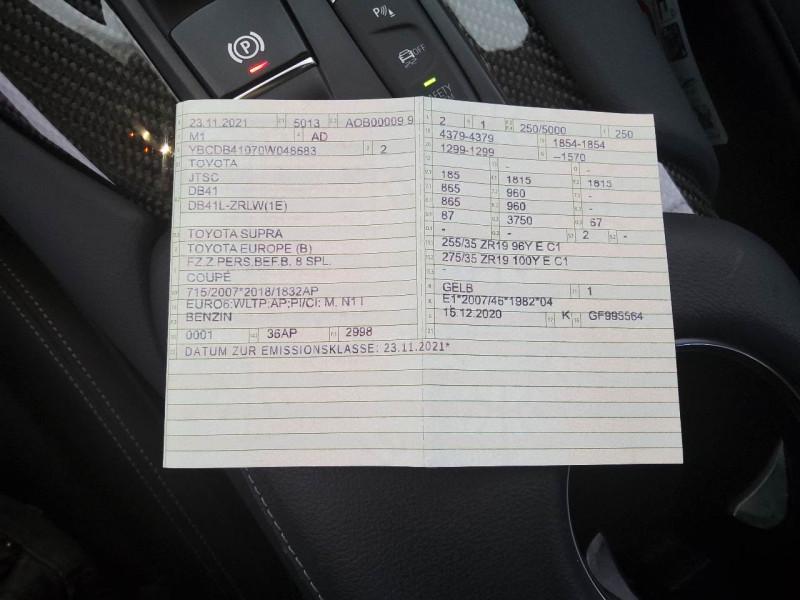 OFF
SAFETY
23.11.2021 5013 AOB00009 9
M1 AD
YBCDB41070W048683 2
TOYOTA
JTSC
DB41
DB41L-ZRLW(1E)
TOYOTA SUPRA
TOYOTA EUROPE (B)
FZ.Z.PERS.BEF.B. 8 SPL.
COUPÉ
715/2007*2018/1832AP
EURO6;WLTP;AP;PI/CI; M, N1 I
BENZIN
0001 36AP 2998
DATUM ZUR EMISSIONSKLASSE: 23.11.2021*
2 1 250/5000 250
4379-4379 1854-1854
1299-1299 --1570
- -
185 1815 1815
865 960 -
865 960 -
87 3750 67
- - 2 -
255/35 ZR19 96Y E C1
275/35 ZR19 100Y E C1
-
GELB 1
E1*2007/46*1982*04
15.12.2020 K GF995564